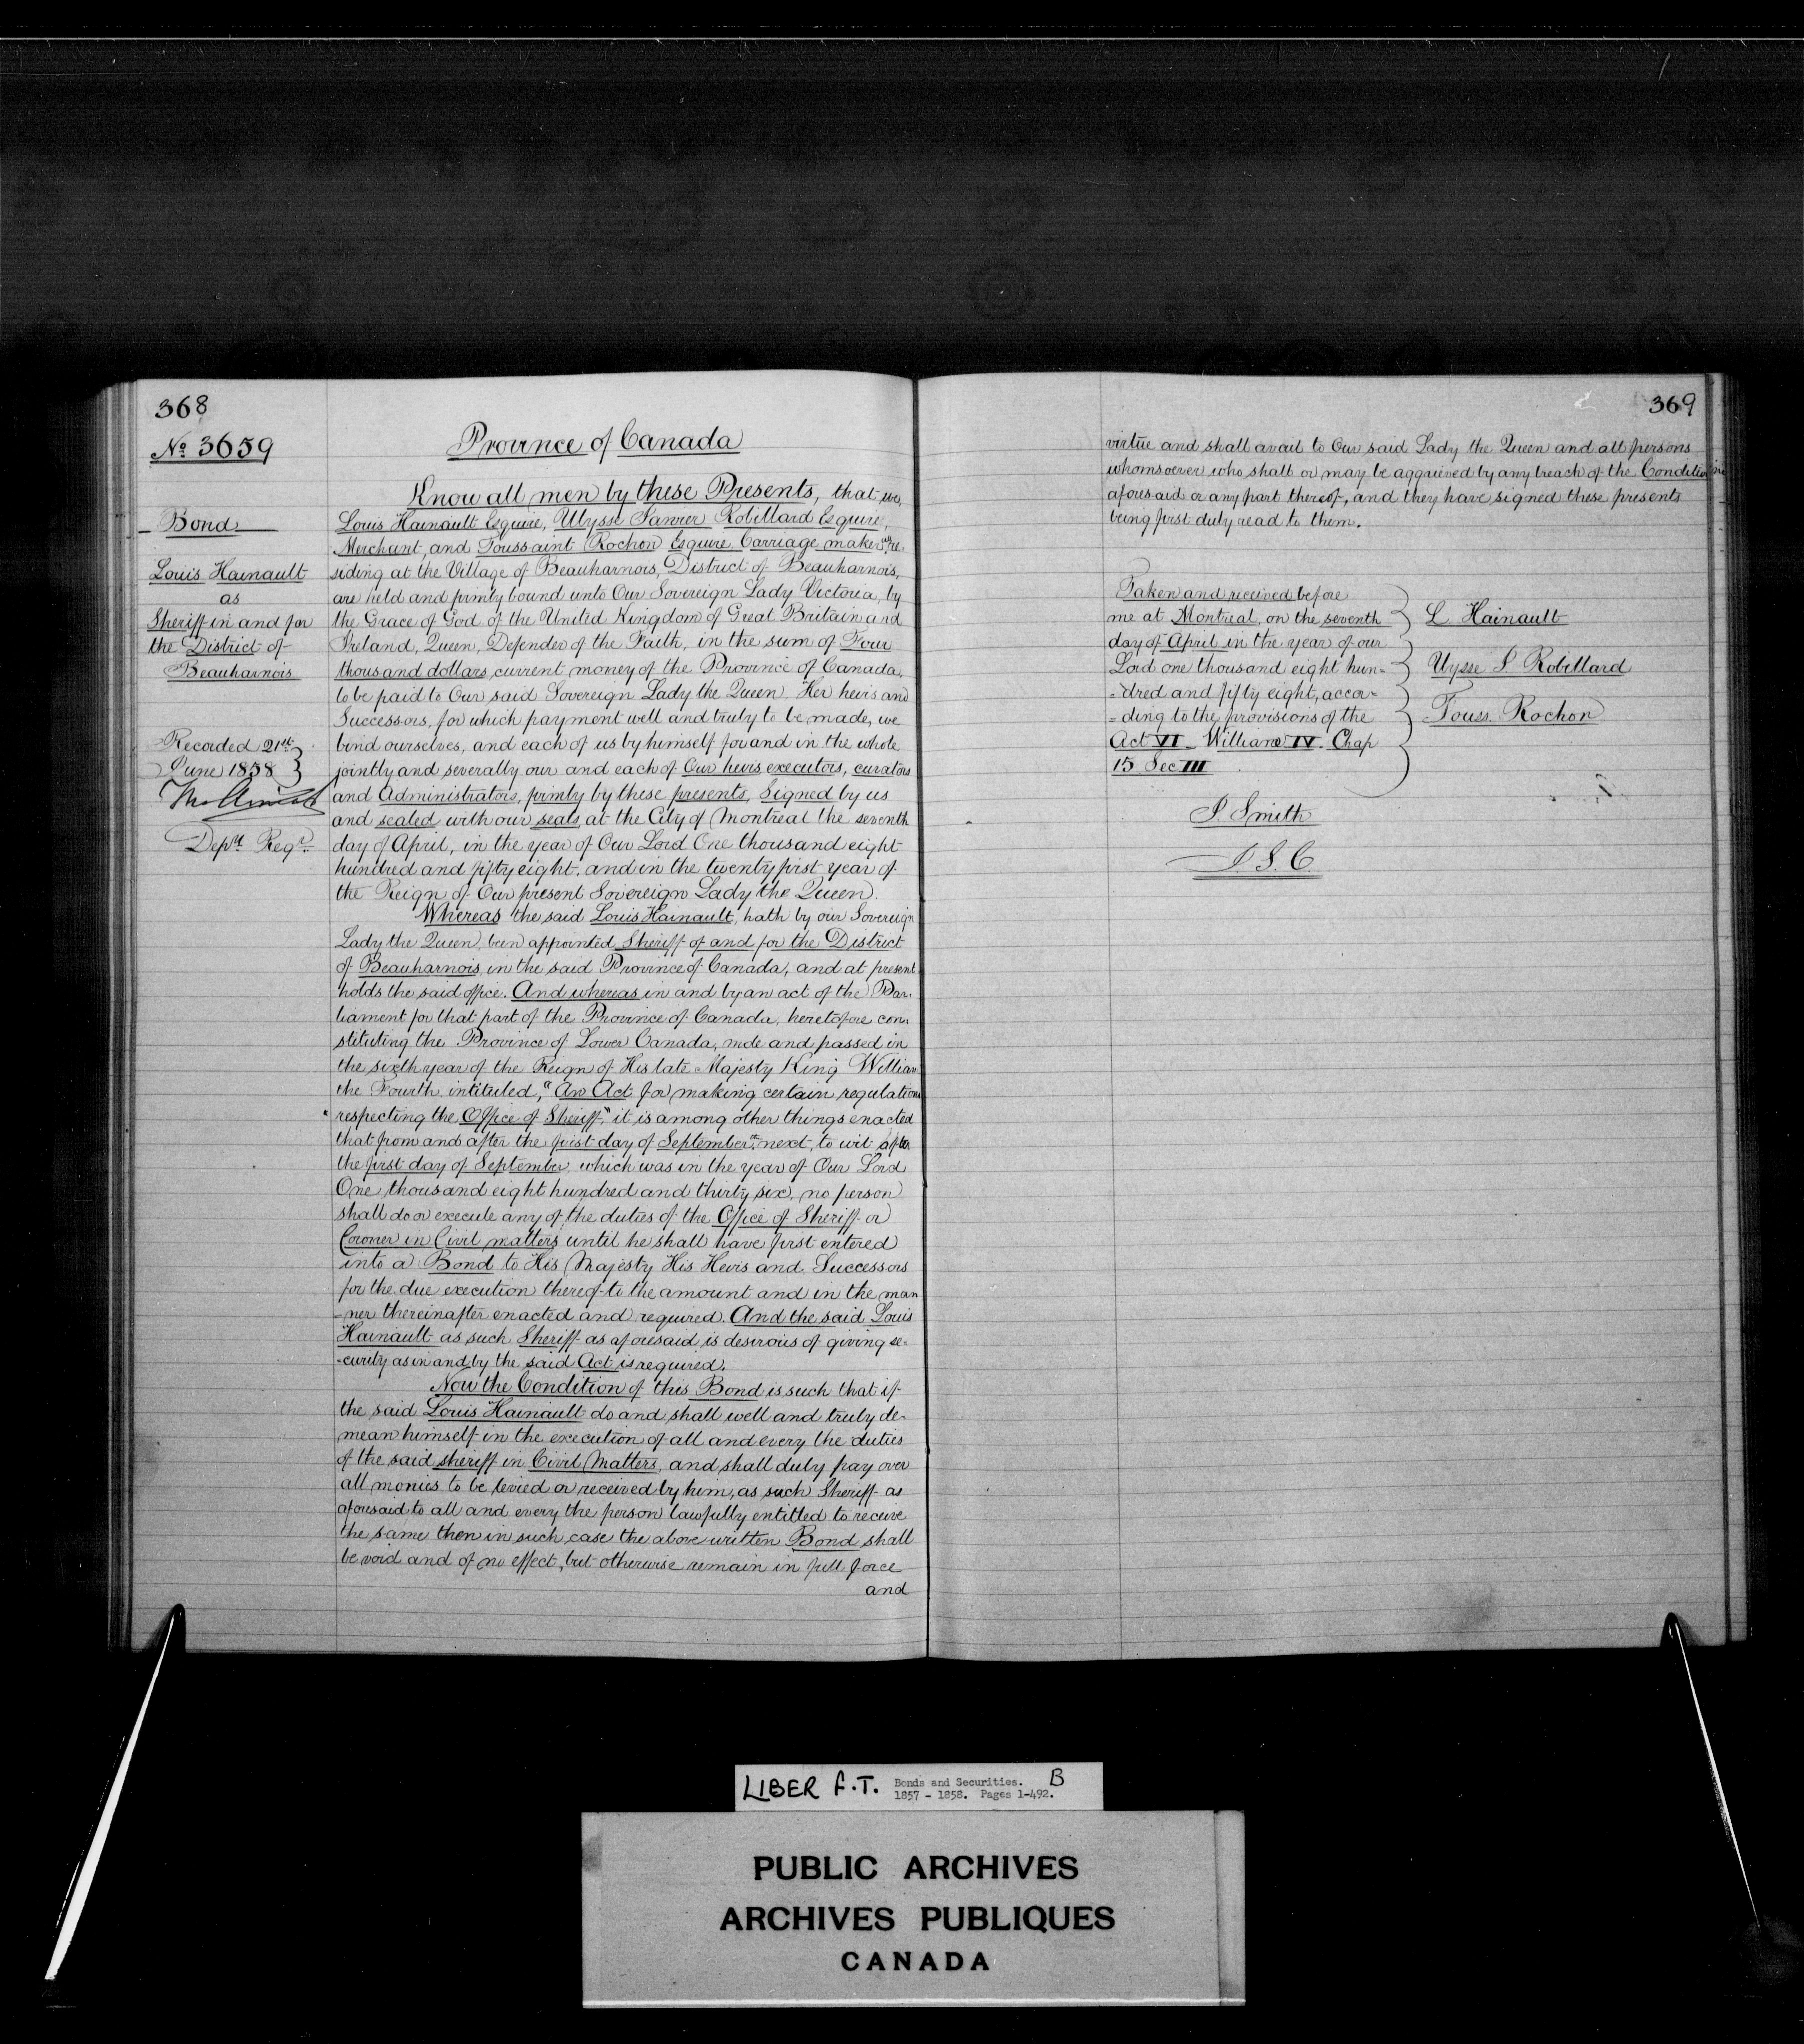 368
No. 3659
Province of Canada
Know all men by these Presents, that we,
Louis Hainault Esquire, Ulysse Janvier Robillard Esquire,
Merchant, and Toussaint Rochon Esquire Carriage maker all re-
siding at the Village of Beauharnois, District of Beauharnois,
are held and firmly bound unto Our Sovereign Lady Victoria, by
the Grace of God of the United Kingdom of Great Britain and
Ireland, Queen, Defender of the Faith, in the sum of Four
thousand dollars, current money of the Province of Canada,
to be paid to Our said Sovereign Lady the Queen Her heirs and
Successors, for which payment well and truly to be made, we
bind ourselves, and each of us by himself for and in the whole
jointly and severally our and each of Our heirs executors, curators
and Administrators, firmly by these presents, Signed by us
and sealed with our seals, at the City of Montreal the seventh
day of April, in the year of Our Lord One thousand eight
hundred and fifty eight, and in the twenty first year of
the Reign of Our present Sovereign Lady the Queen.
Whereas the said Louis Hainault, hath by our Sovereign
Lady the Queen, been appointed Sheriff of and for the District
of Beauharnois, in the said Province of Canada, and at present
holds the said office. And whereas in and by an act of the Par-
liament for that part of the Province of Canada, heretofore con-
stituting the Province of Lower Canada, mde and passed in
the sixth year of the Reign of His late Majesty King William
the Fourth intituled, "An Act for making certain regulations
"respecting the Office of Sheriff," it is among other things enacted
that from and after the first day of September next, to wit after
the first day of September which was in the year of Our Lord
One thousand eight hundred and thirty six, no person
shall do or execute any of the duties of the Office of Sheriff or
Coroner in Civil matters until he shall have first entered
into a Bond to His Majesty His Heirs and Successors
for the due execution thereof to the amount and in the man
=ner thereinafter enacted and required. And the said Louis
Hainault as such Sheriff as aforesaid is desirous of giving se=
=curity as in and by the said Act is required.
Now the Condition of this Bond is such that if
the said Louis Hainault do and shall well and truly de-
mean himself in the execution of all and every the duties
of the said sheriff in Civil Matters, and shall duly pay over
all monies to be levied or received by him, as such Sheriff as
aforesaid to all and every the person lawfully entitled to receive
the same then in such case the above written Bond shall
be void and of no effect, but otherwise remain in full force
and
Bond
Louis Hainault
as
Sheriff in and for
the District of
Beauharnois
Recorded 21st
June 1858
Depy Regr
369
virtue and shall avail to Our said Lady the Queen and all persons
whomsoever who shall or may be aggrieved by any breach of the Condition
aforesaid or any part thereof, and they have signed these presents
being first duly read to them.
Taken and received before
me at Montreal, on the seventh
day of April in the year of our
Lord one thousand eight hun=
=dred and fifty eight, accor=
=ding to the provisions of the
Act VI William IV. Chap
15 Sec III
L. Hainault
Ulysse J. Robillard
Touss. Rochon
J. Smith
J. S. C.
LIBER F.T. Bonds and Securities. B
1857 - 1858. Pages 1-492.
PUBLIC ARCHIVES
ARCHIVES PUBLIQUES
CANADA